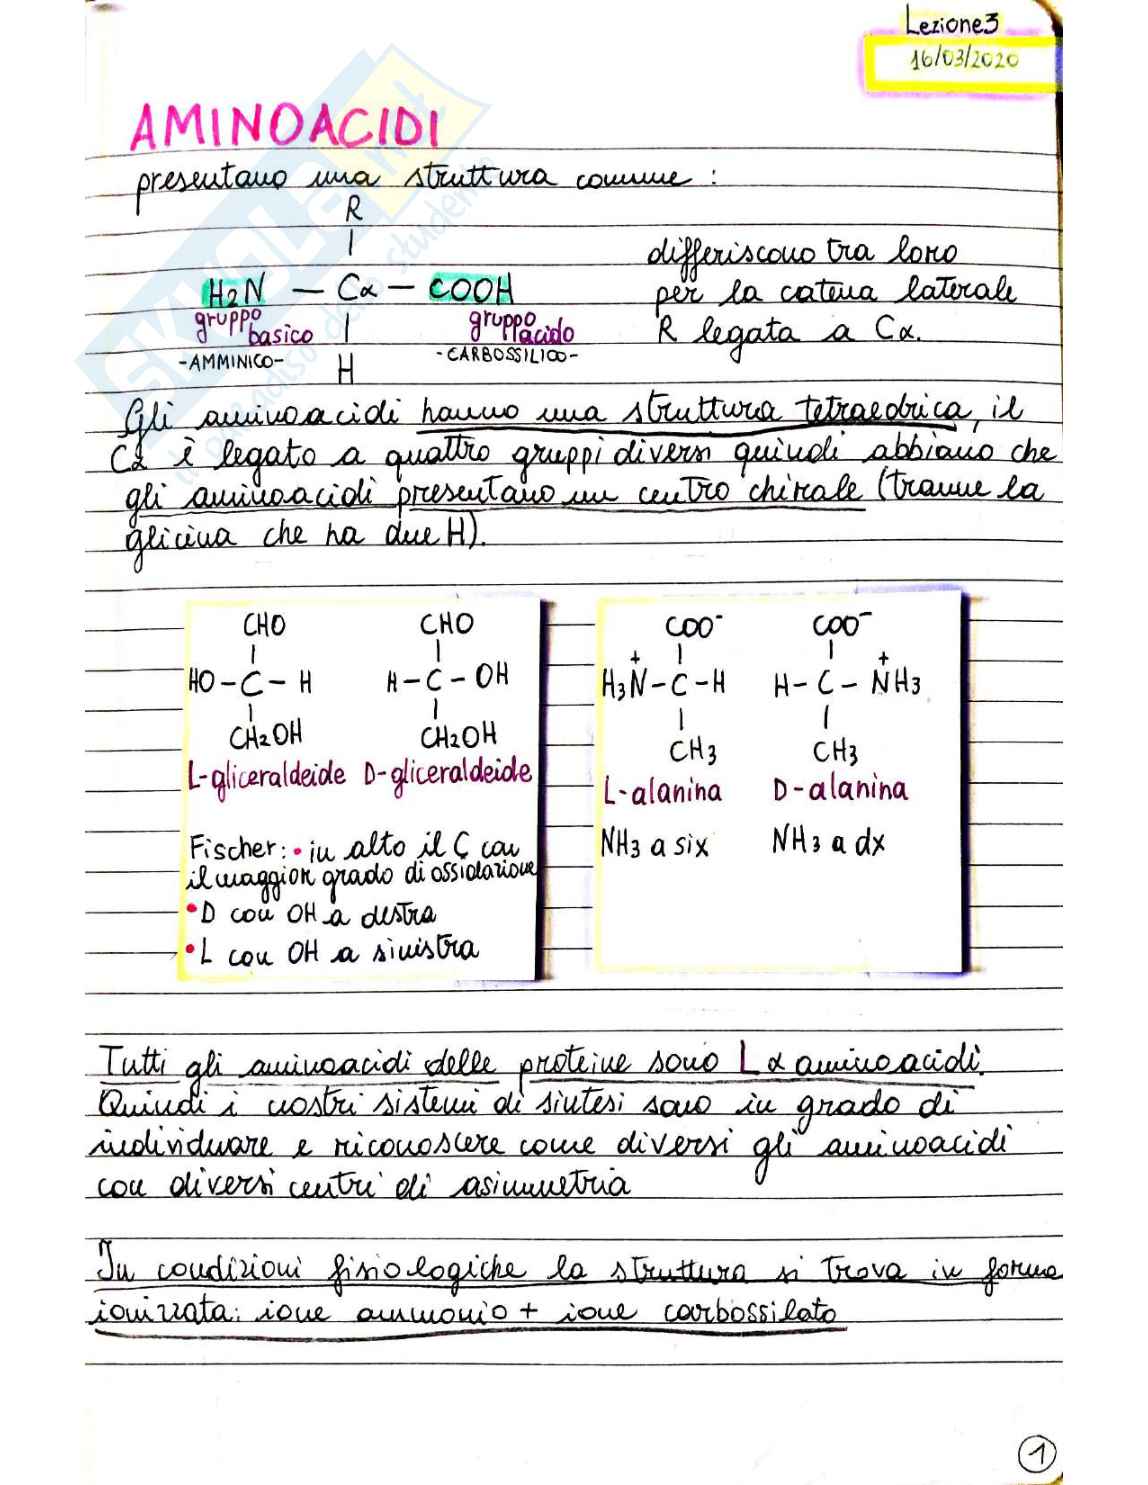 Lezione3
16/03/2020
AMINOACIDI
presentano una struttura comune :
R
H2N — Cα — COOH
gruppo basico
-AMMINICO-
gruppo acido
-CARBOSSILICO-
H
differiscono tra loro
per la catena laterale
R legata a Cα.
Gli aminoacidi hanno una struttura tetraedrica, il
Cα è legato a quattro gruppi diversi quindi abbiamo che
gli aminoacidi presentano un centro chirale (tranne la
glicina che ha due H).
CHO
HO – C – H
CH2OH
L-gliceraldeide
CHO
H – C – OH
CH2OH
D-gliceraldeide
Fischer: • in alto il C con
il maggior grado di ossidazione
• D con OH a destra
• L con OH a sinistra
COO⁻
H3N⁺ – C – H
CH3
L-alanina
NH3 a six
COO⁻
H – C – N⁺H3
CH3
D-alanina
NH3 a dx
Tutti gli aminoacidi delle proteine sono L α aminoacidi.
Quindi i nostri sistemi di sintesi sono in grado di
individuare e riconoscere come diversi gli aminoacidi
con diversi centri di asimmetria
In condizioni fisiologiche la struttura si trova in forma
ionizzata: ione ammonio + ione carbossilato
1
SKUOLA.net
il paradiso dello studente